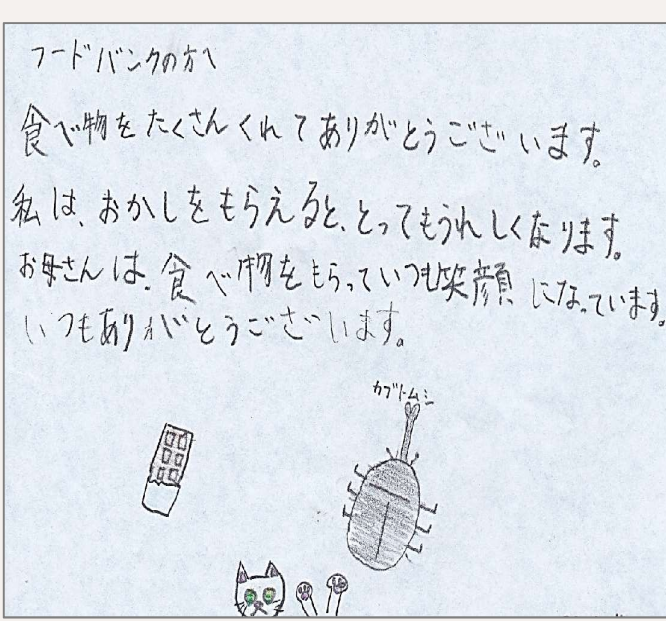 フードバンクの方へ
食べ物をたくさんくれてありがとうございます。
私は、おかしをもらえると、とってもうれしくなります。
お母さんは、食べ物をもらっていつも笑顔になっています。
いつもありがとうございます。
カブトムシ